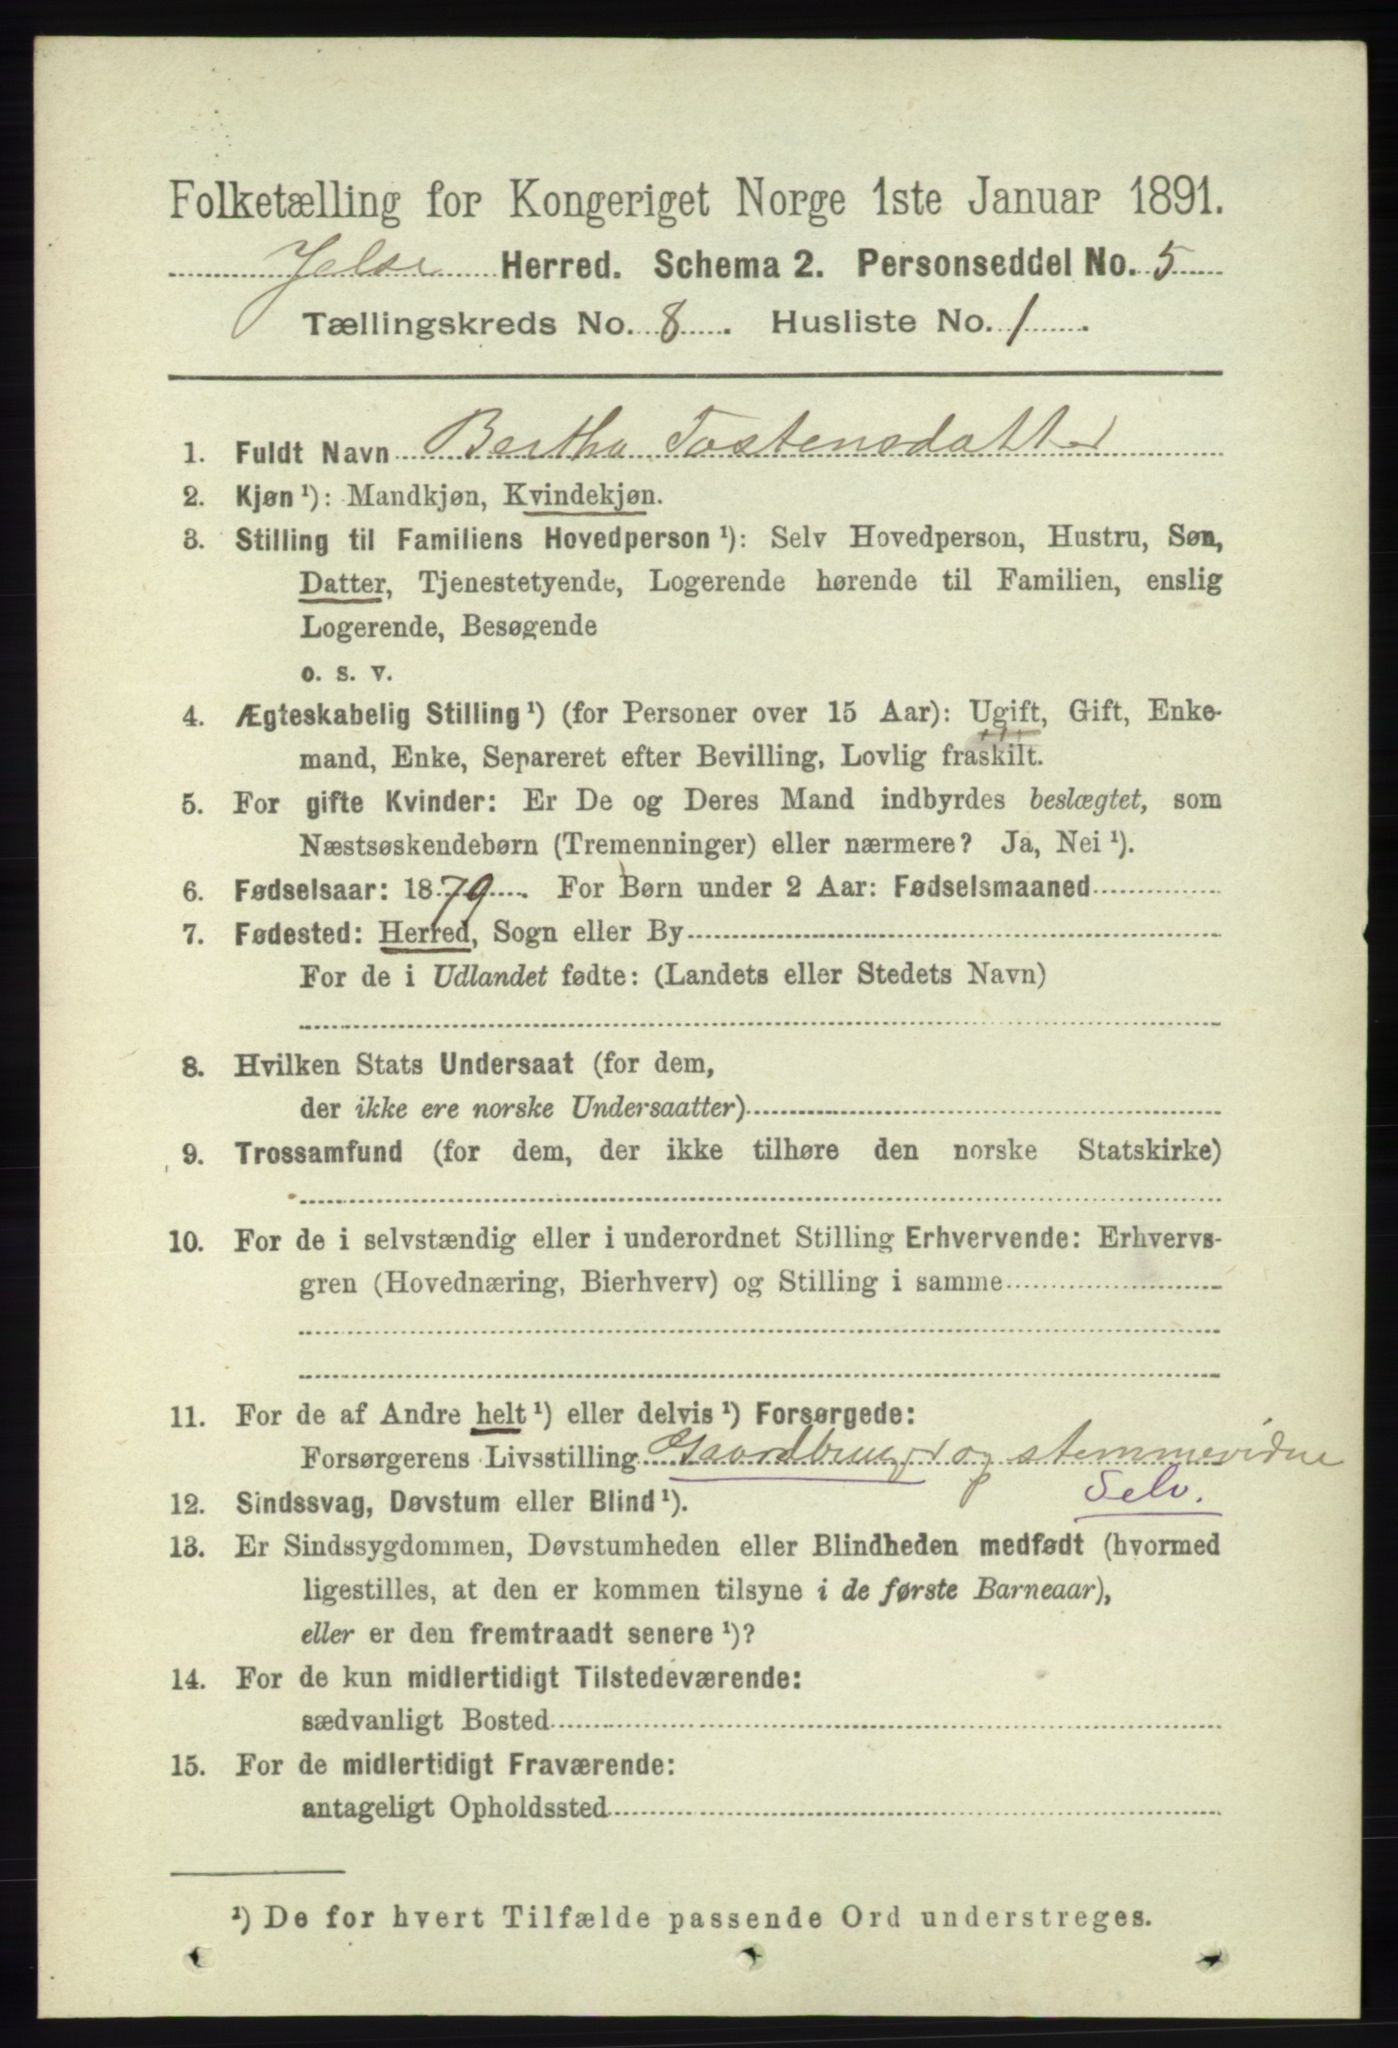 Folketælling for Kongeriget Norge 1ste Januar 1891.
Jelse Herred. Schema 2. Personseddel No. 5
Tællingskreds No. 8. Husliste No. 1.
1. Fuldt Navn Bertha Tostensdatter
2. Kjøn¹): Mandkjøn, Kvindekjøn.
3. Stilling til Familiens Hovedperson¹): Selv Hovedperson, Hustru, Søn,
Datter, Tjenestetyende, Logerende hørende til Familien, enslig
Logerende, Besøgende
o. s. v.
4. Ægteskabelig Stilling¹) (for Personer over 15 Aar): Ugift, Gift, Enke-
mand, Enke, Separeret efter Bevilling, Lovlig fraskilt.
5. For gifte Kvinder: Er De og Deres Mand indbyrdes beslægtet, som
Næstsøskendebørn (Tremenninger) eller nærmere? Ja, Nei¹).
6. Fødselsaar: 1879. For Børn under 2 Aar: Fødselsmaaned
7. Fødested: Herred, Sogn eller By
For de i Udlandet fødte: (Landets eller Stedets Navn)
8. Hvilken Stats Undersaat (for dem,
der ikke ere norske Undersaatter)
9. Trossamfund (for dem, der ikke tilhøre den norske Statskirke)
10. For de i selvstændig eller i underordnet Stilling Erhvervende: Erhvervs-
gren (Hovednæring, Bierhverv) og Stilling i samme
11. For de af Andre helt¹) eller delvis¹) Forsørgede:
Forsørgerens Livsstilling Gaardbruger og stemmevidne
Selv.
12. Sindssvag, Døvstum eller Blind¹).
13. Er Sindssygdommen, Døvstumheden eller Blindheden medfødt (hvormed
ligestilles, at den er kommen tilsyne i de første Barneaar),
eller er den fremtraadt senere¹)?
14. For de kun midlertidigt Tilstedeværende:
sædvanligt Bosted
15. For de midlertidigt Fraværende:
antageligt Opholdssted
¹) De for hvert Tilfælde passende Ord understreges.